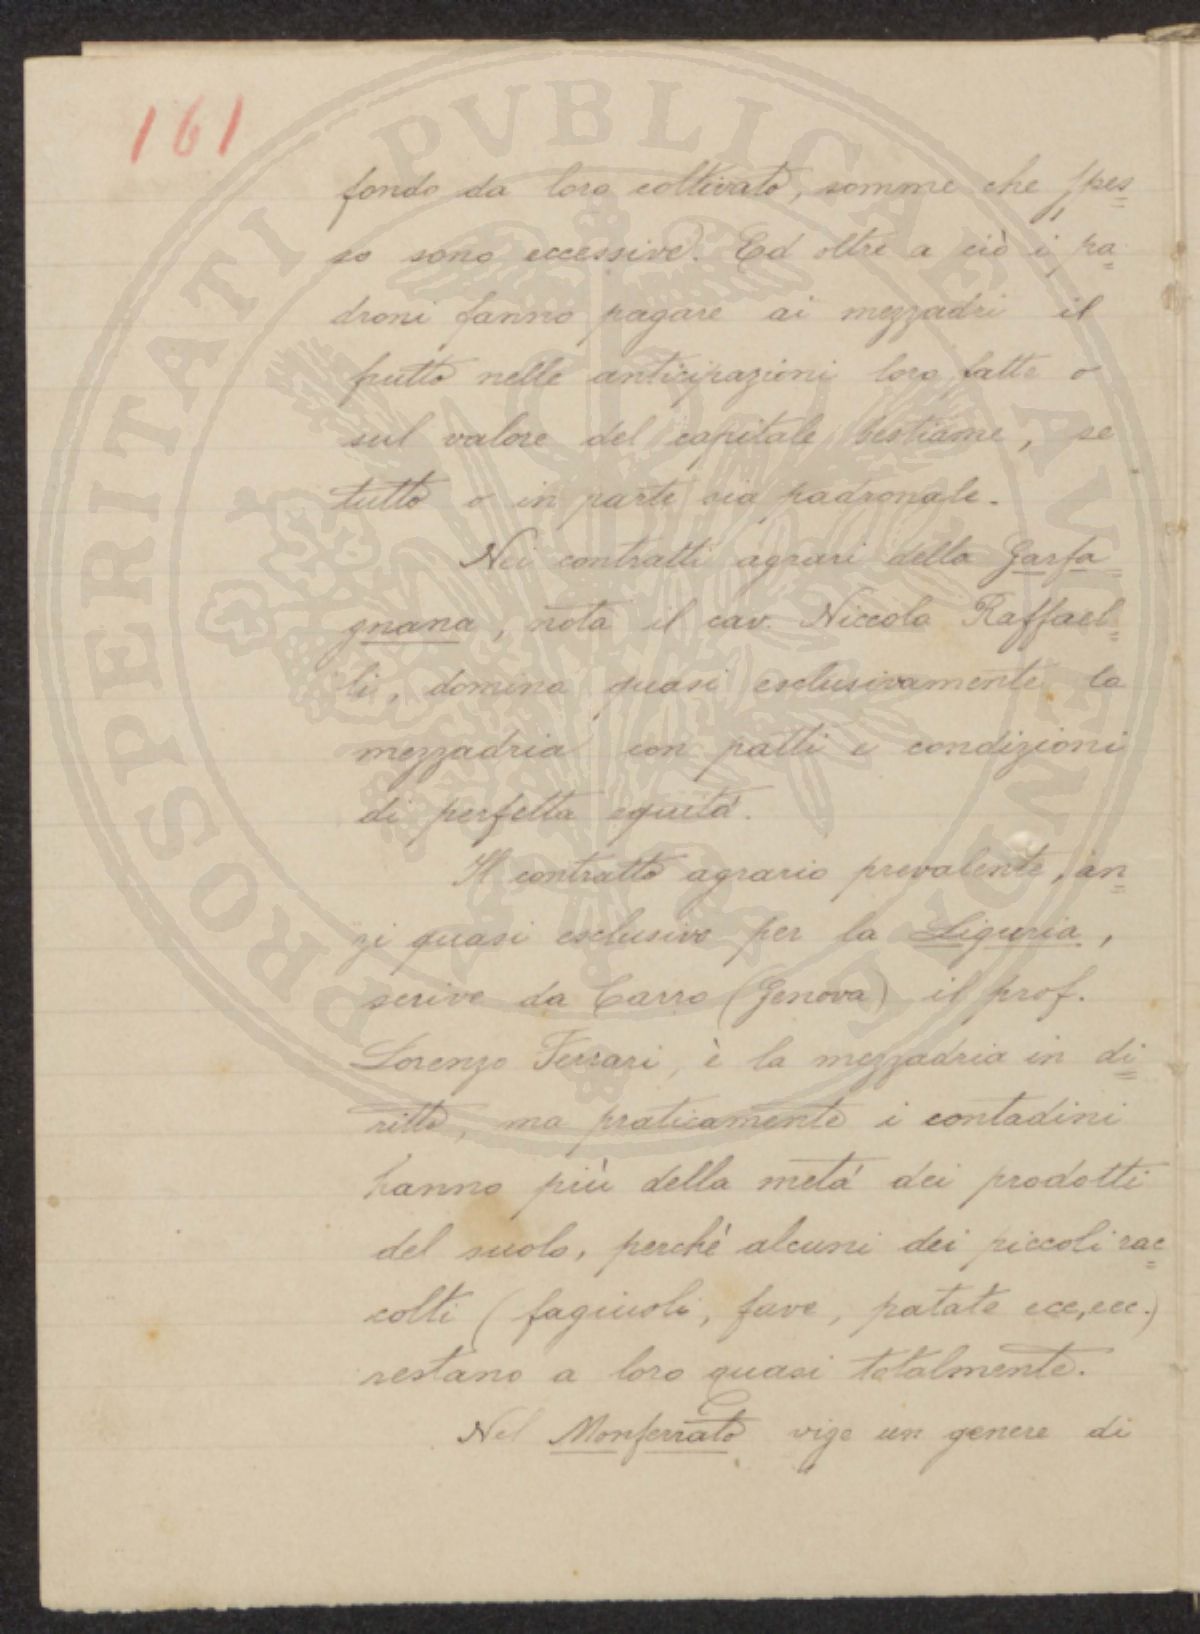 161
fondo da loro coltivato, somme che spes=
so sono eccessive. Ed oltre a ciò i pa=
droni fanno pagare ai mezzadri il
frutto nelle anticipazioni loro fatte o
sul valore del capitale bestiame, se
tutto o in parte sia padronale.
Nei contratti agrari della Garfa=
gnana, nota il cav. Niccolo Raffael=
li, domina quasi esclusivamente la
mezzadria con patti e condizioni
di perfetta equità.
Il contratto agrario prevalente, an=
zi quasi esclusivo per la Liguria,
scrive da Carro (Genova) il prof.
Lorenzo Ferrari, è la mezzadria in di=
ritto, ma praticamente i contadini
hanno più della metà dei prodotti
del suolo, perchè alcuni dei piccoli rac=
colti (fagiuoli, fave, patate ecc, ecc.)
restano a loro quasi totalmente.
Nel Monferrato vige un genere di
PROSPERITATI PVBLICAE AVGENDAE